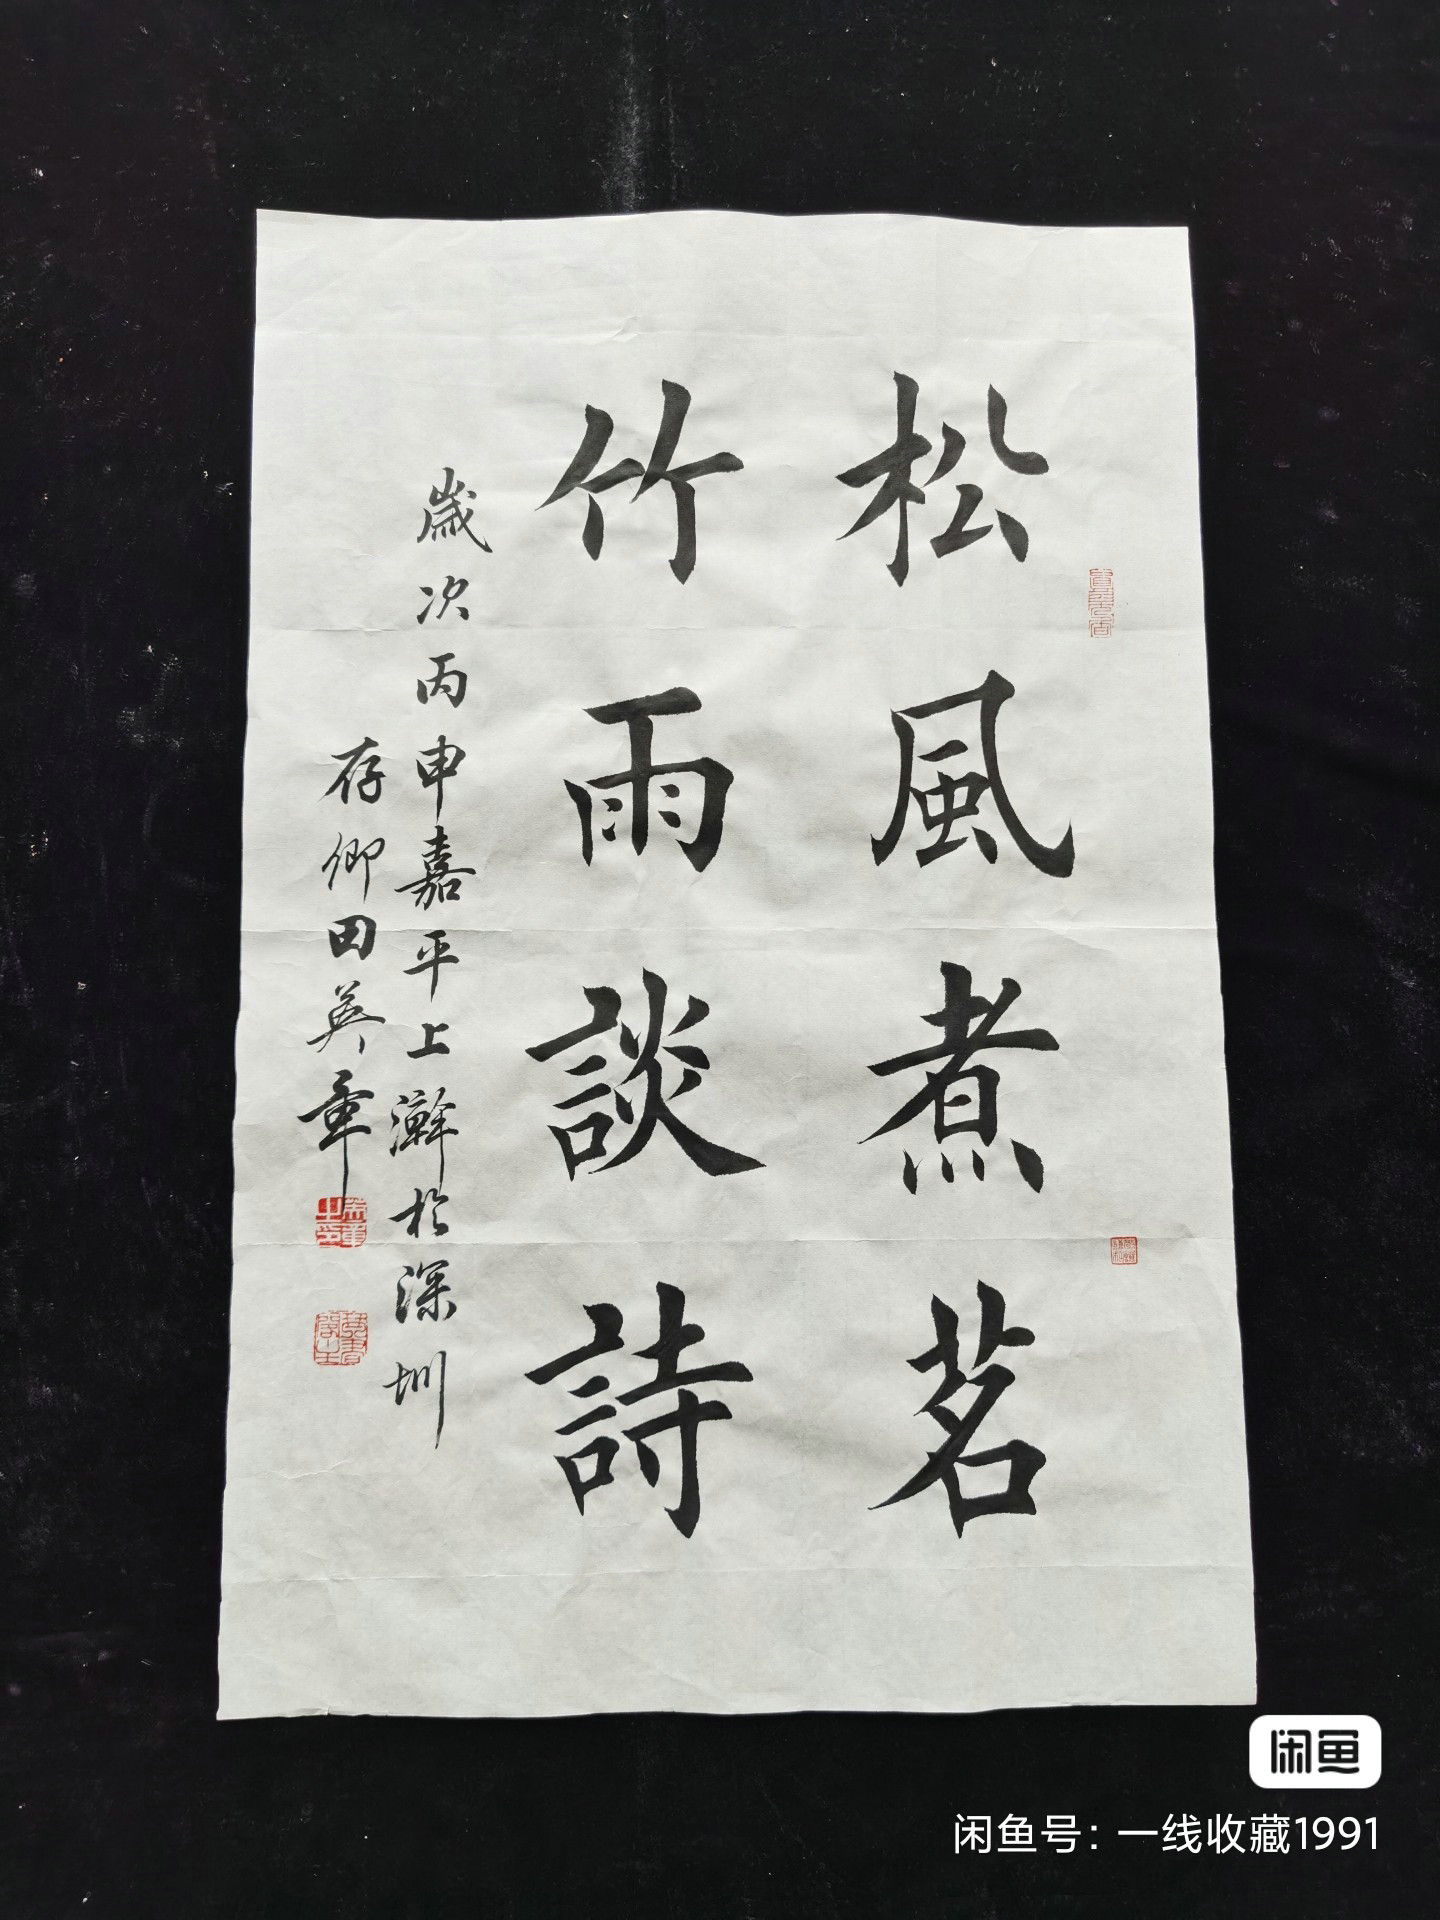 松風煮茗
竹雨談詩
歲次丙申嘉平上澣於深圳
存卿田英章
英章之印
闲鱼
闲鱼号：一线收藏1991